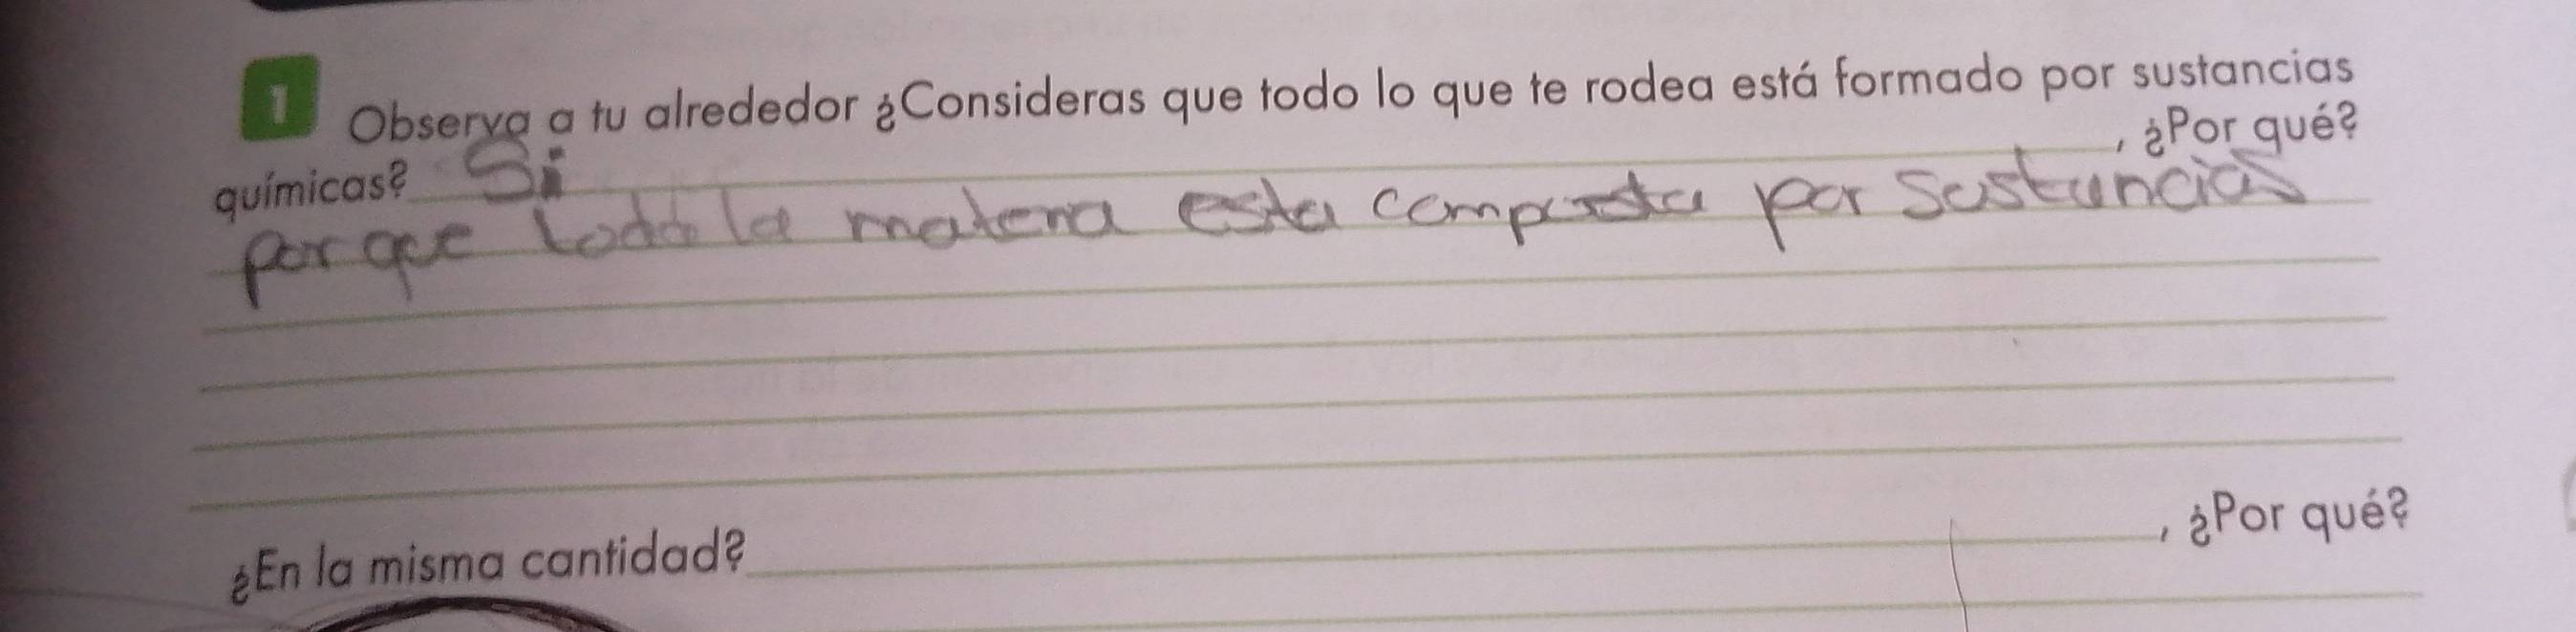 1 Observa a tu alrededor ¿Consideras que todo lo que te rodea está formado por sustancias
químicas? Si , ¿Por qué?
por que toda la materia esta compuesta por sustancias
¿En la misma cantidad? , ¿Por qué?